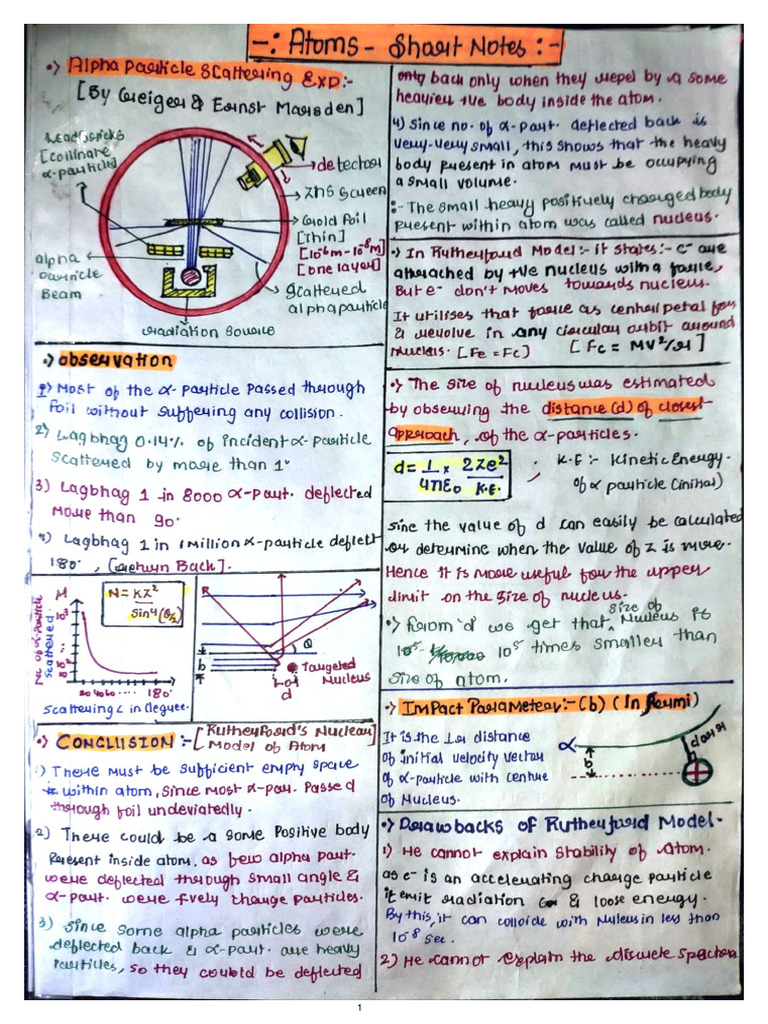 -: Atoms - Short Notes :-
•) Alpha Particle Scattering EXP:-
[By Geiger & Ernst Marsden]
Lead bricks
[collimate
α-particles]
detector
ZnS screen
Gold Foil
[Thin]
[10⁻⁶m-10⁻⁸m]
[one layer]
alpha
particle
Beam
Scattered
alpha particle
radiation source
•) observation
1) Most of the α-Particle passed through
foil without suffering any collision.
2) Lagbhag 0.14% of incident α-particle
scattered by more than 1°
3) Lagbhag 1 in 8000 α-part. deflected
more than 90°
4) Lagbhag 1 in 1 million α-particle deflect
180°, [return Back].
No. of α-Particle
scattered.
N
10³
10²
20 40 60 .... 180°
Scattering ∠ in Degree.
N = KZ²
Sin⁴(θ/2)
R
θ
b
d
Targeted
Nucleus
•) CONCLUSION :- [Rutherford's Nuclear
Model of Atom
1) There must be sufficient empty space
within atom, since most α-par. Passed
through foil undeviatedly.
2) There could be a some Positive body
Present inside atom, as few alpha part.
were deflected through small angle &
α-part. were +vely charge particles.
3) Since some alpha particles were
deflected back & α-part. are heavy
Particles, so they could be deflected
only back only when they repel by a some
heavier +ve body inside the atom.
4) Since no. of α-part. deflected back is
very-very small, this shows that the heavy
body present in atom must be occupying
a small volume.
:- The small heavy positively charged body
present within atom was called nucleus.
•) In Rutherford Model:- it states:- e⁻ are
attracted by +ve nucleus with a force,
But e⁻ don't moves towards nucleus.
It utilises that force as centripetal for
& revolve in any circular orbit around
nucleus. [Fe = Fc] [Fc = MV²/r]
•) The size of nucleus was estimated
by observing the distance (d) of closest
approach, of the α-particles.
d = 1 x 2Ze²
4πε₀ K.E.
K.E :- Kinetic Energy
of α particle (initial)
since the value of d can easily be calculated
or determine when the value of z is more.
Hence it is more useful for the upper
limit on the size of nucleus.
•) From 'd' we get that size of Nucleus is
10⁵ times smaller than
size of atom.
•) Impact Parameter:- (b) (In fermi)
It is the ⊥r distance
of initial velocity vector
of α-particle with centre
of Nucleus.
α
b
d or r
•) Drawbacks of Rutherford Model-
1) He cannot explain stability of Atom.
as e⁻ is an accelerating charge particle
it emit radiation & loose energy.
By this, it can colloide with Nuleus in less than
10⁻⁸ sec.
2) He cannot explain the discrete spectra
1